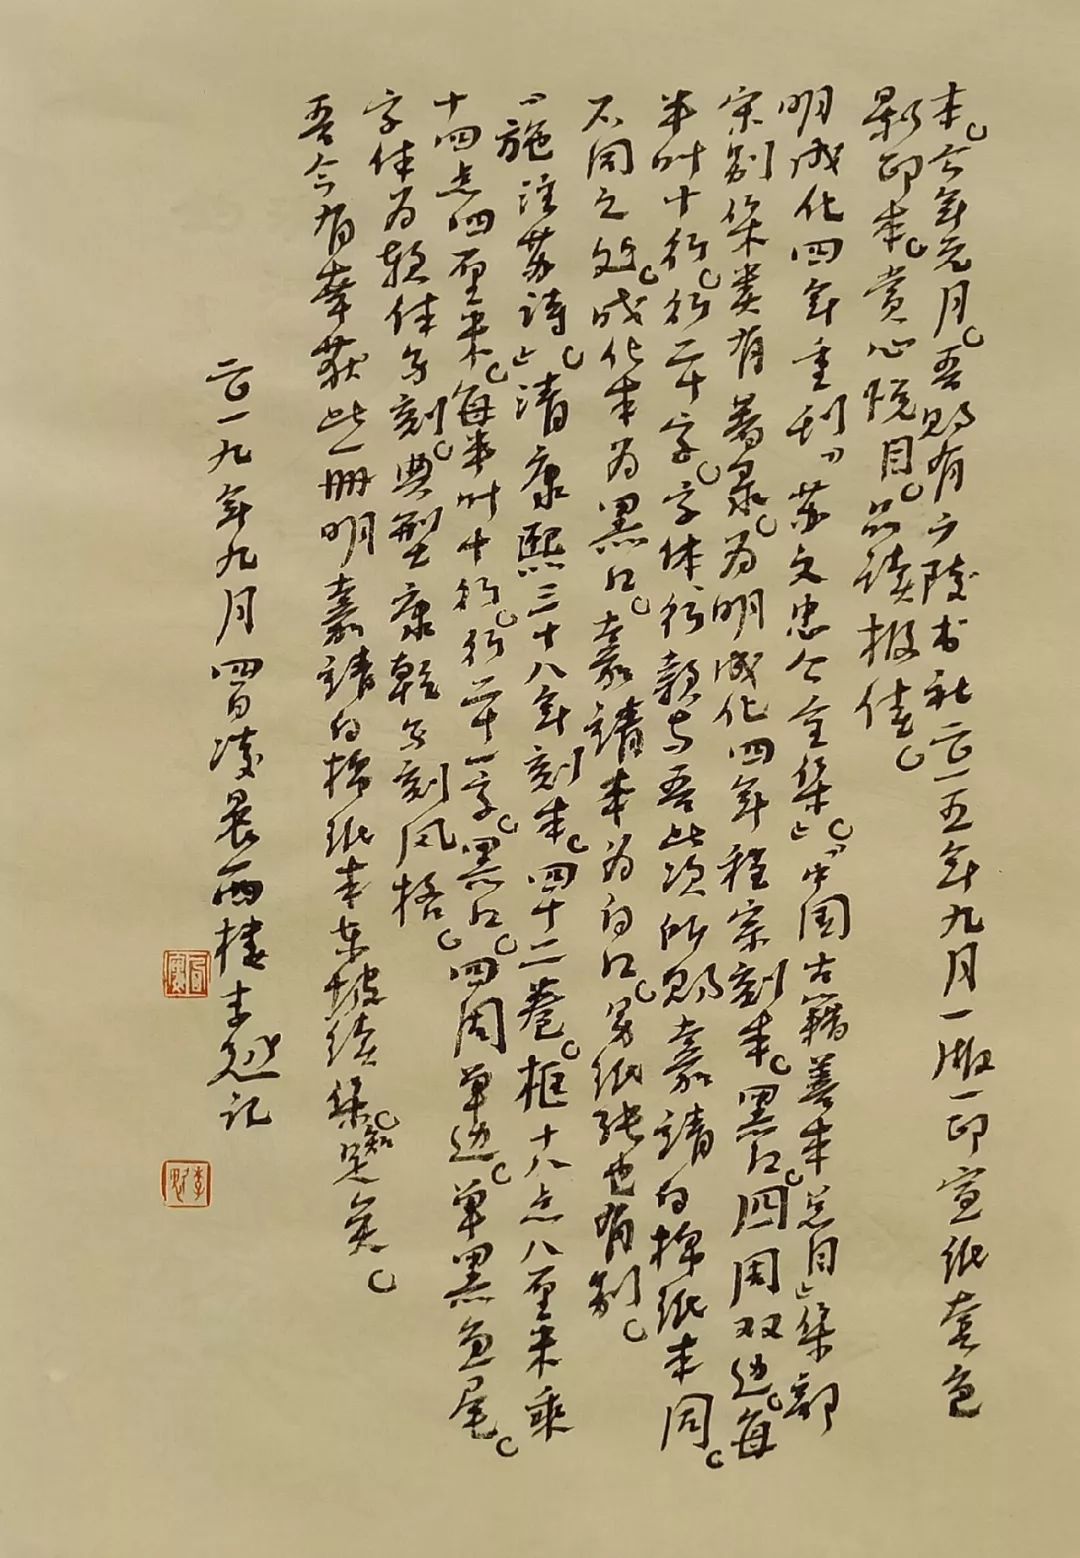 本。今年元月。吾购有广陵书社二〇一五年九月一版一印宣纸套色
影印本。赏心悦目。品读极佳。
明成化四年重刊《苏文忠公全集》。《中国古籍善本总目》集部
宋别集类有着录。为明成化四年程宗刻本。黑口。四周双边。每
半叶十行。行二十字。字体行款与吾此次所购嘉靖白棉纸本同。
不同之处。成化本为黑口。嘉靖本为白口。另纸张也有别。
《施注苏诗》。清康熙三十八年刻本。四十二卷。框十八点八厘米乘
十四点四厘米。每半叶十行。行二十一字。黑口。四周单边。单黑鱼尾。
字体为软体写刻。典型康乾写刻风格。
吾今有幸获此一册明嘉靖白棉纸本东坡续集。知足矣。
二〇一九年九月四日凌晨西楼李 记